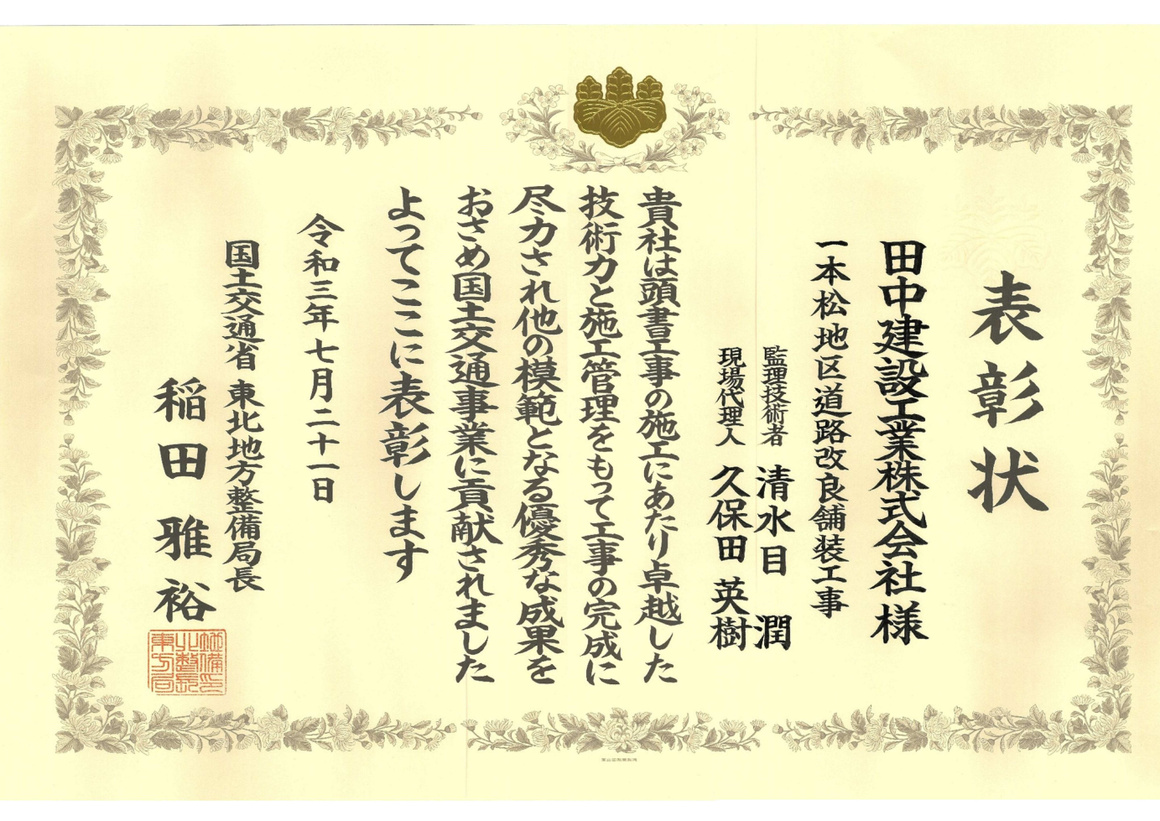 表彰状
田中建設工業株式会社 様
一本松地区道路改良舗装工事
監理技術者 清水目 潤
現場代理人 久保田 英樹
貴社は頭書工事の施工にあたり卓越した
技術力と施工管理をもって工事の完成に
尽力され他の模範となる優秀な成果を
おさめ国土交通事業に貢献されました
よってここに表彰します
令和三年七月二十一日
国土交通省 東北地方整備局長
稲田 雅裕